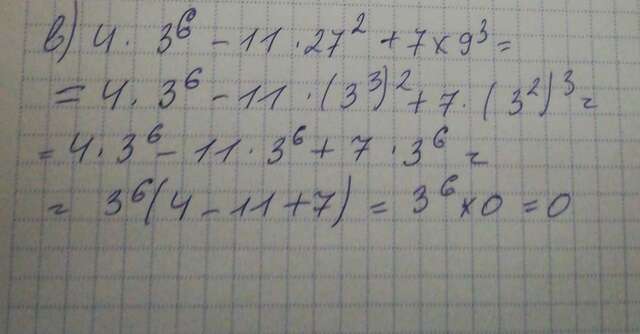 в) 4 · 3⁶ - 11 · 27² + 7 × 9³ =
= 4 · 3⁶ - 11 · (3³)² + 7 · (3²)³ =
= 4 · 3⁶ - 11 · 3⁶ + 7 · 3⁶ =
= 3⁶(4 - 11 + 7) = 3⁶ × 0 = 0